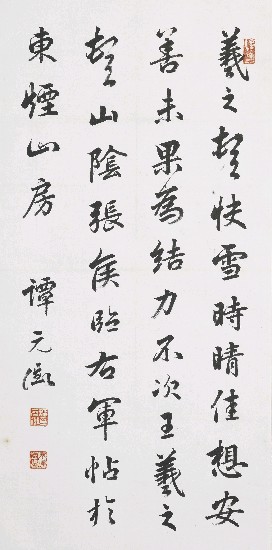 羲之頓快雪時晴佳想安
善未果為結力不次王羲之
頓山陰張侯臨右軍帖於
東煙山房 譚元